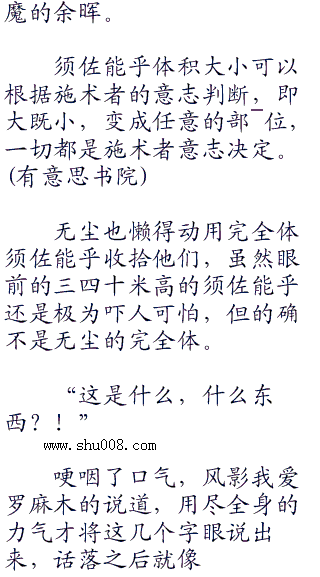 魔的余晖。
须佐能乎体积大小可以
根据施术者的意志判断，即
大既小，变成任意的部_位，
一切都是施术者意志决定。
(有意思书院)
无尘也懒得动用完全体
须佐能乎收拾他们，虽然眼
前的三四十米高的须佐能乎
还是极为吓人可怕，但的确
不是无尘的完全体。
“这是什么，什么东
西？！”
www.shu008.com
哽咽了口气，风影我爱
罗麻木的说道，用尽全身的
力气才将这几个字眼说出
来，话落之后就像